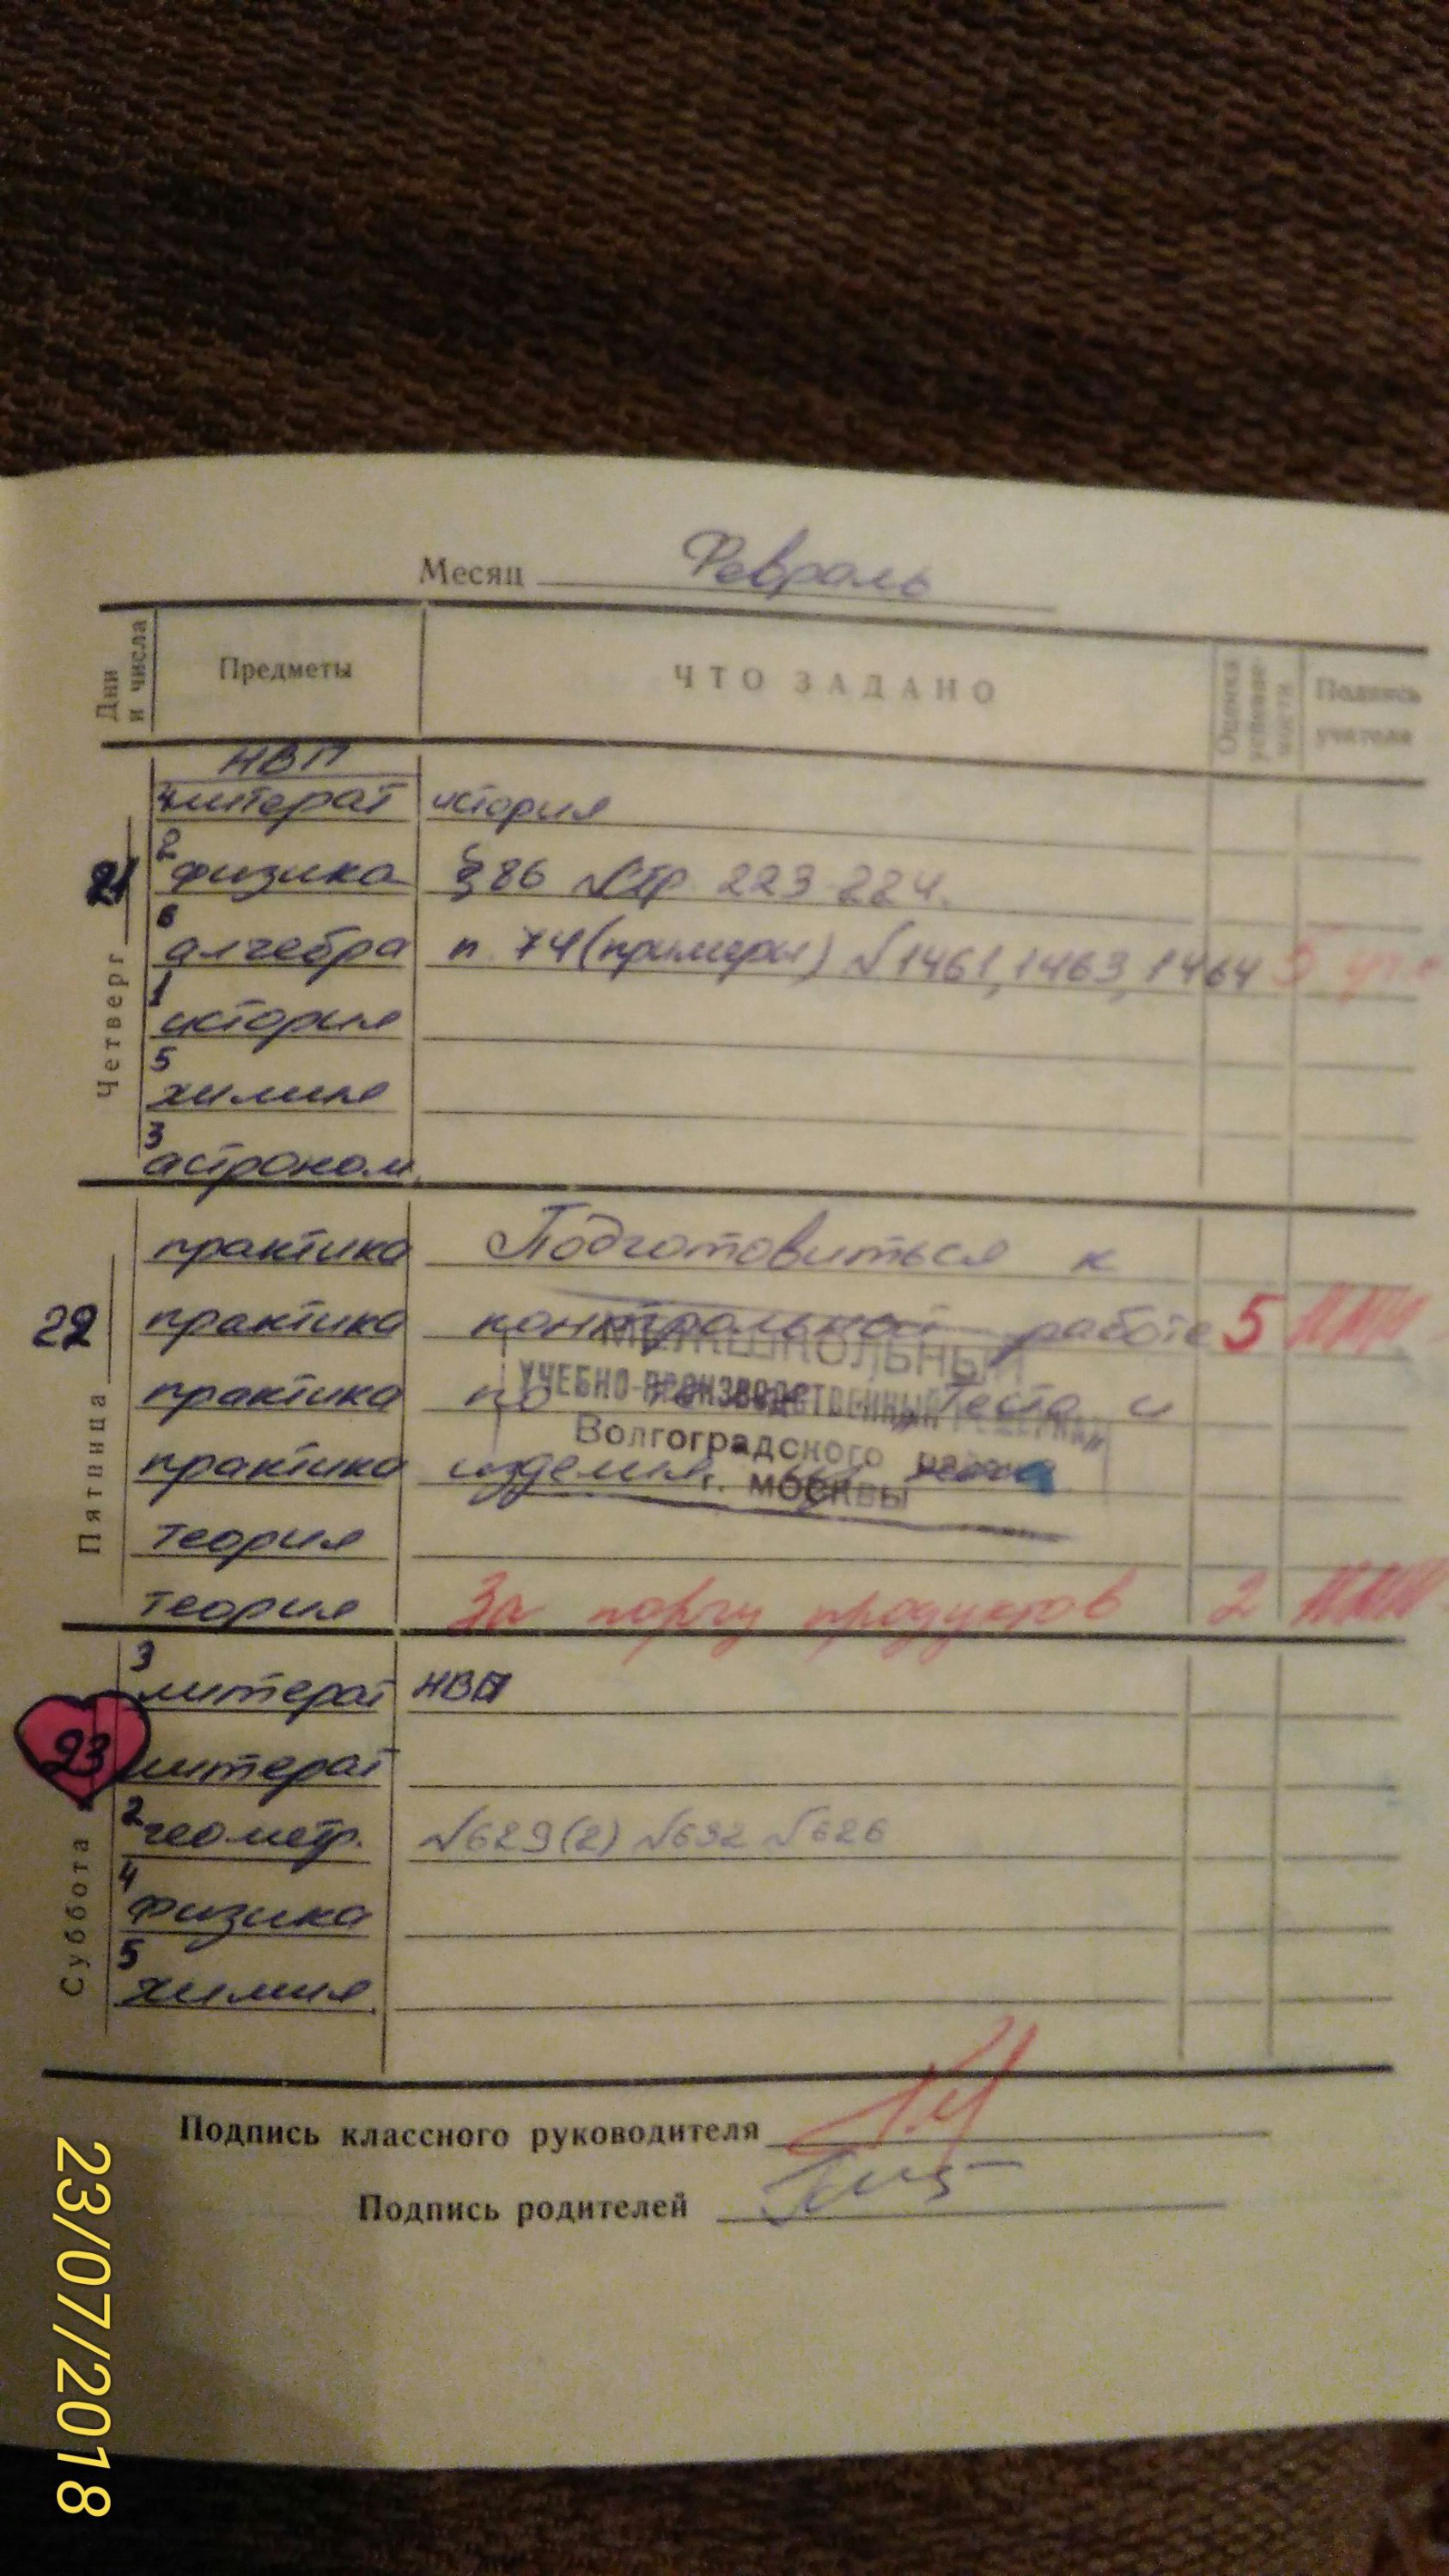 Месяц Февраль
Дни и числа Предметы ЧТО ЗАДАНО Оценка успеваемости Подпись учителя
Четверг 21
НВП
4 литерат история
2 физика § 86 Стр. 223-224.
6 алгебра п. 74 (примеры) № 1461, 1463, 1464 5
1 история
5 химия
3 астроном.
Пятница 22
практика Подготовиться к
практика контрольной работе 5
практика по Теста и
практика изделия
МЕЖШКОЛЬНЫЙ
УЧЕБНО-ПРОИЗВОДСТВЕННЫЙ
Волгоградского района
г. МОСКВЫ
теория
теория За порчу продуктов 2
Суббота 23
3 литерат НВП
литерат
2 геометр. №629(2) №632 №626
4 физика
5 химия
Подпись классного руководителя
Подпись родителей
23/07/2018